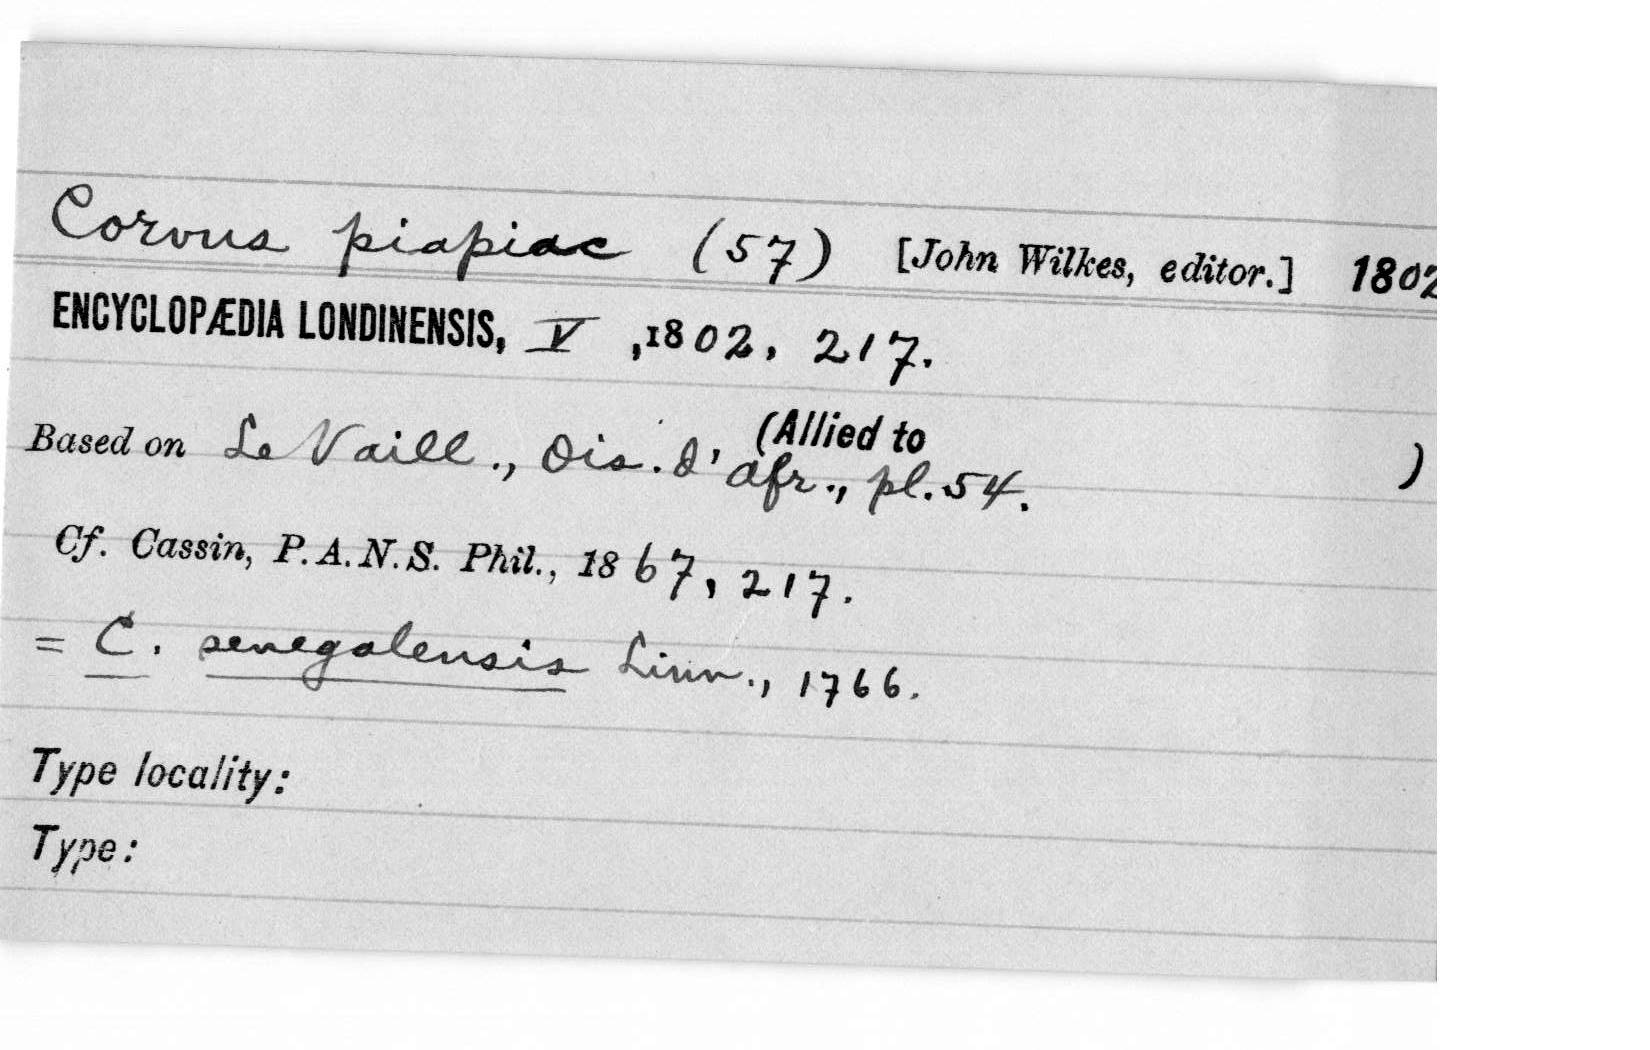 Corvus piapiac (57) [John Wilkes, editor.] 1802
ENCYCLOPÆDIA LONDINENSIS, V ,1802, 217.
(Allied to )
Based on Le Vaill., Ois. d'Afr., pl. 54.
Cf. Cassin, P.A.N.S. Phil., 1867, 217.
= C. senegalensis Linn., 1766.
Type locality:
Type: